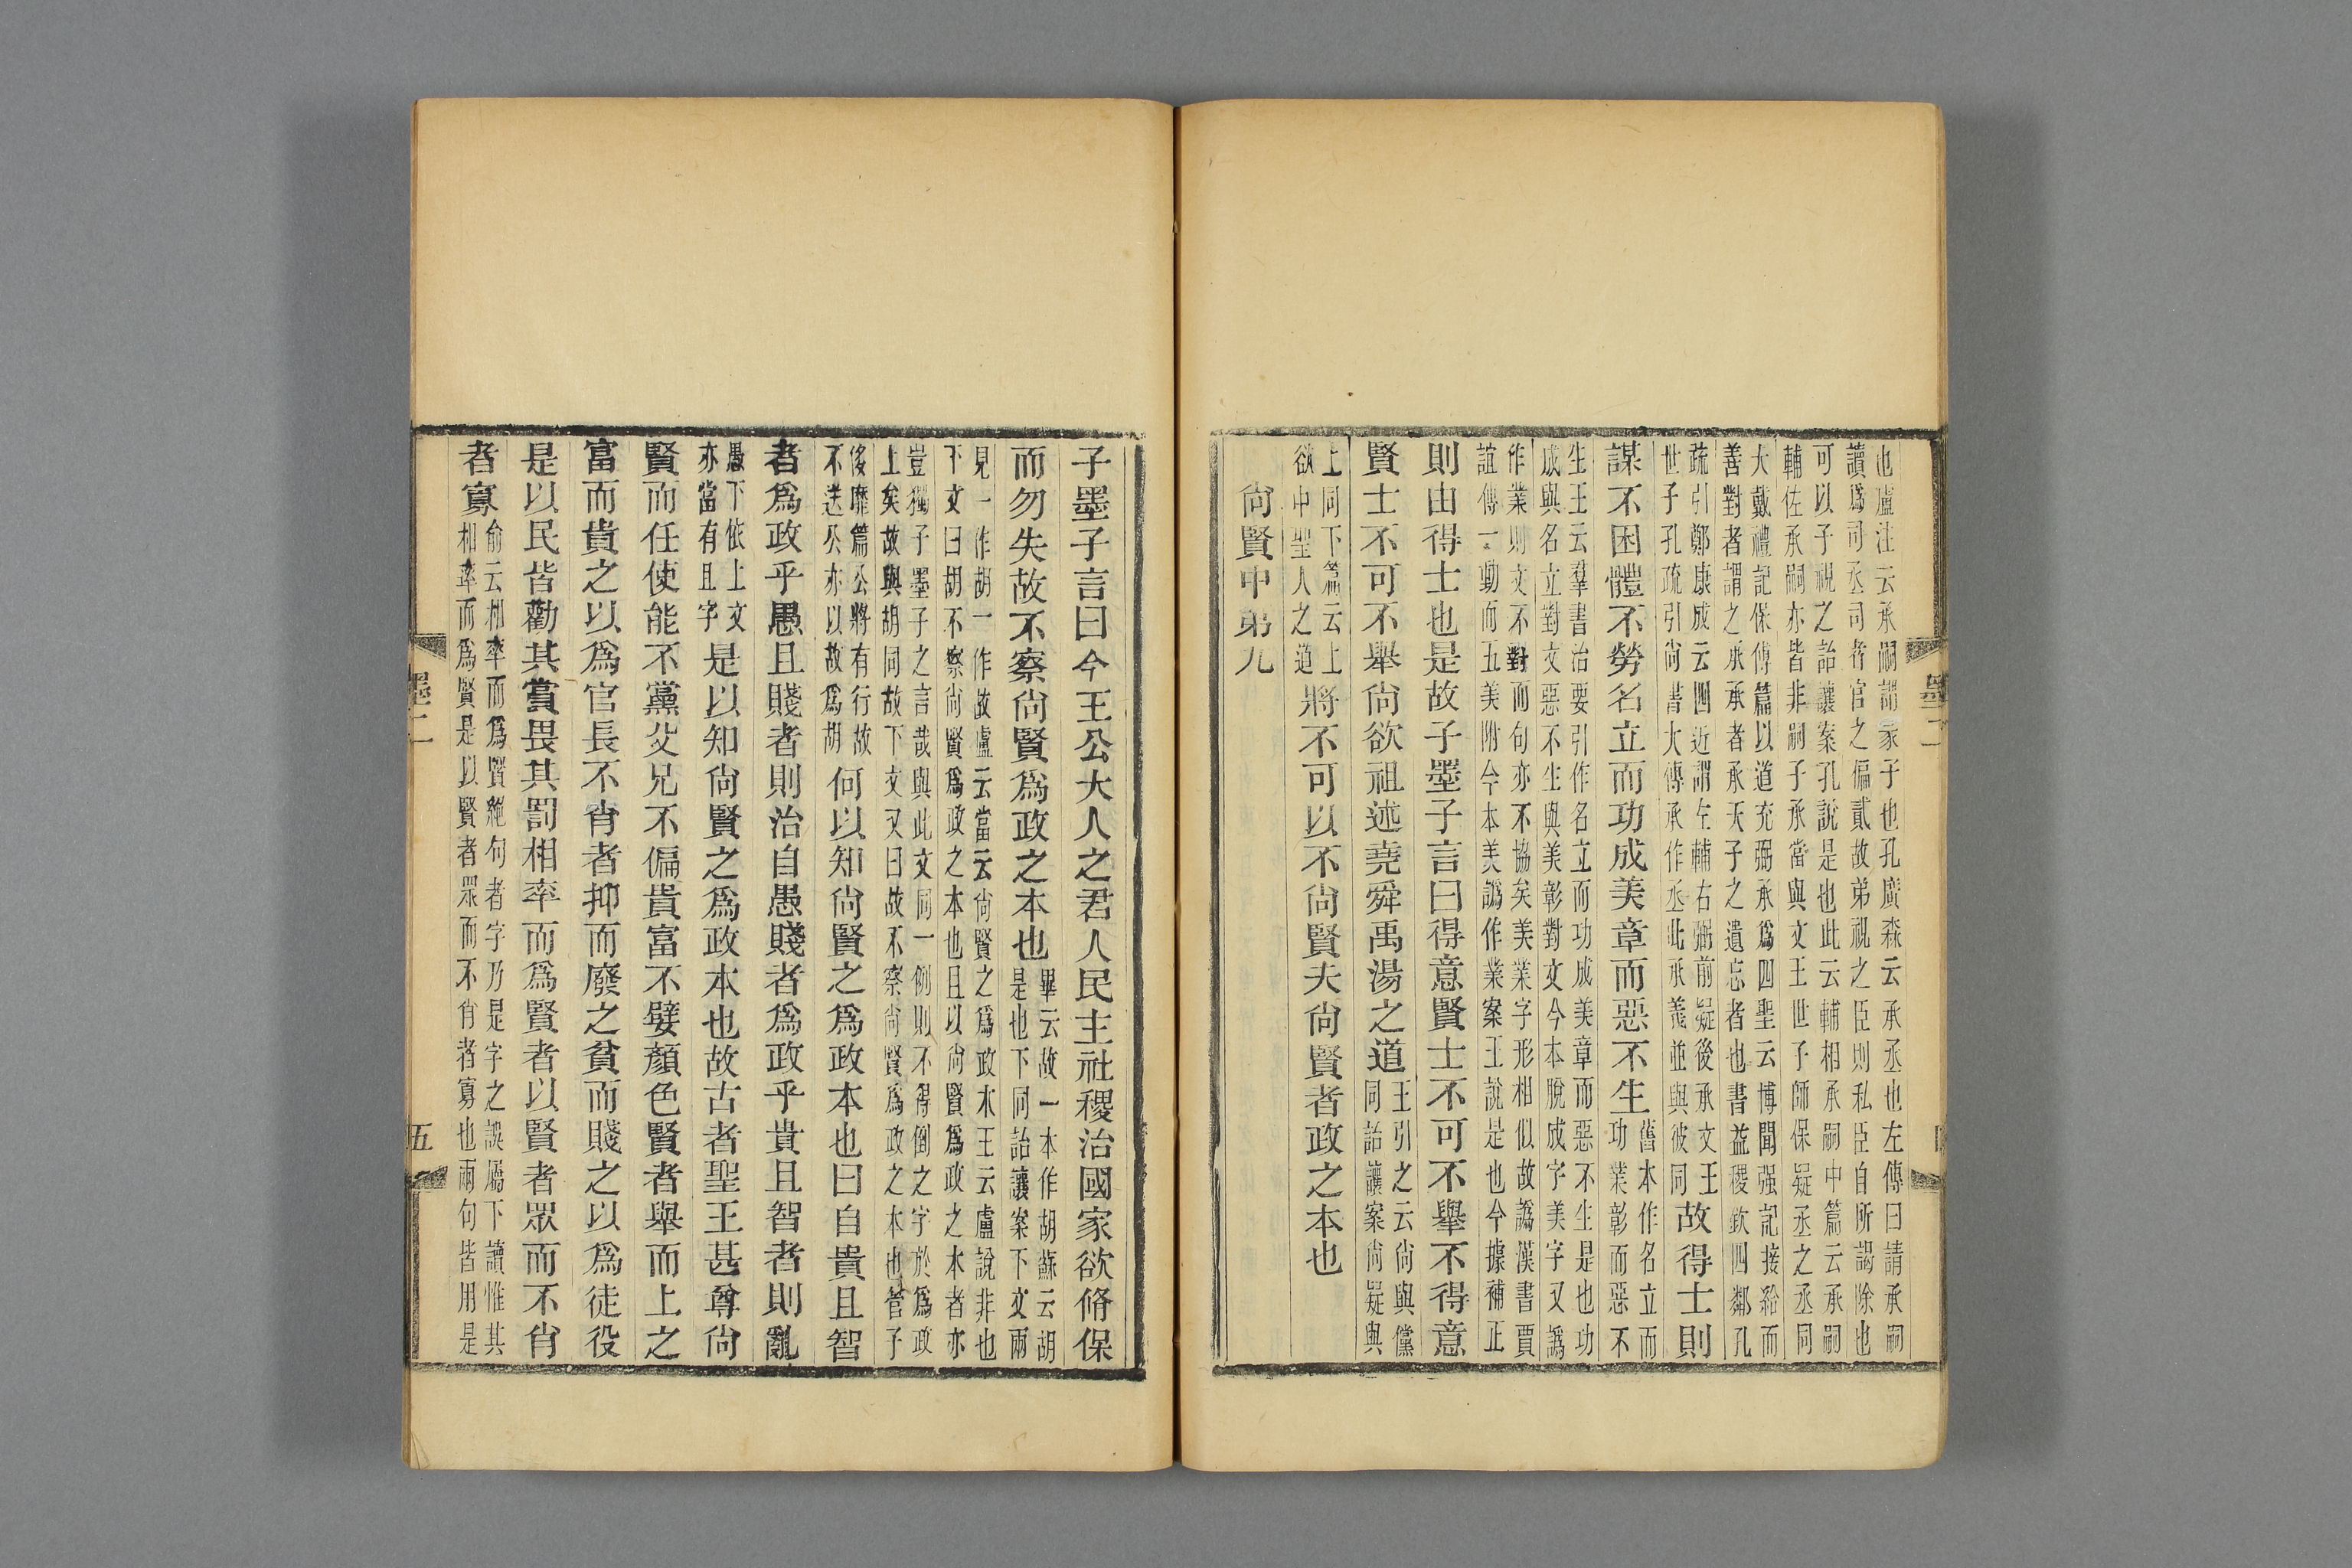 也盧注云承嗣謂冢子也孔廣森云承丞也左傳曰請承嗣
讀爲司丞司者官之偏貳故弟視之臣則私臣自所謁除也
可以子視之詒讓案孔說是也此云輔相承嗣中篇云承嗣
輔佐承嗣亦皆非嗣子承當與文王世子師保疑丞之丞同
大戴禮記保傅篇以道充弼承爲四聖云博聞强記接給而
善對者謂之承承者承天子之遺忘者也書益稷欽四鄰孔
疏引鄭康成云四近謂左輔右弼前疑後承文王世子孔疏引尚書大傳承作丞此承義並與彼同故得士則
謀不困體不勞名立而功成美章而惡不生舊本作名立而功業彰而惡不
生王云羣書治要引作名立而功成美章而惡不生是也功
成與名立對文惡不生與美彰對文今本脫成字美字又譌
作業則文不對而句亦不協矣美業字形相似故譌漢書賈
誼傳一動而五美附今本美譌作業案王說是也今據補正
則由得士也是故子墨子言曰得意賢士不可不舉不得意
賢士不可不舉尚欲祖述堯舜禹湯之道王引之云尚與儻同詒讓案尚疑與
上同下篇云上欲中聖人之道將不可以不尚賢夫尚賢者政之本也
尚賢中弟九
墨二
子墨子言曰今王公大人之君人民主社稷治國家欲脩保
而勿失故不察尚賢爲政之本也畢云故一本作胡蘇云胡是也下同詒讓案下文兩
見一作胡一作故盧云當云尚賢之爲政本王云盧說非也
下文曰胡不察尚賢爲政之本也且以尚賢爲政之本者亦
豈獨子墨子之言哉與此文同一例則不得倒之字於爲政
上矣故與胡同故下文又曰故不察尚賢爲政之本也管子
侈靡篇公將有行故不送公亦以故爲胡何以知尚賢之爲政本也曰自貴且智
者爲政乎愚且賤者則治自愚賤者爲政乎貴且智者則亂
愚下依上文亦當有且字是以知尚賢之爲政本也故古者聖王甚尊尚
賢而任使能不黨父兄不偏貴富不嬖顏色賢者舉而上之
富而貴之以爲官長不肖者抑而廢之貧而賤之以爲徒役
是以民皆勸其賞畏其罰相率而爲賢者以賢者眾而不肖
者寡俞云相率而爲賢絕句者字乃是字之誤屬下讀惟其相率而爲賢是以賢者眾而不肖者寡也兩句皆用是
墨二
五